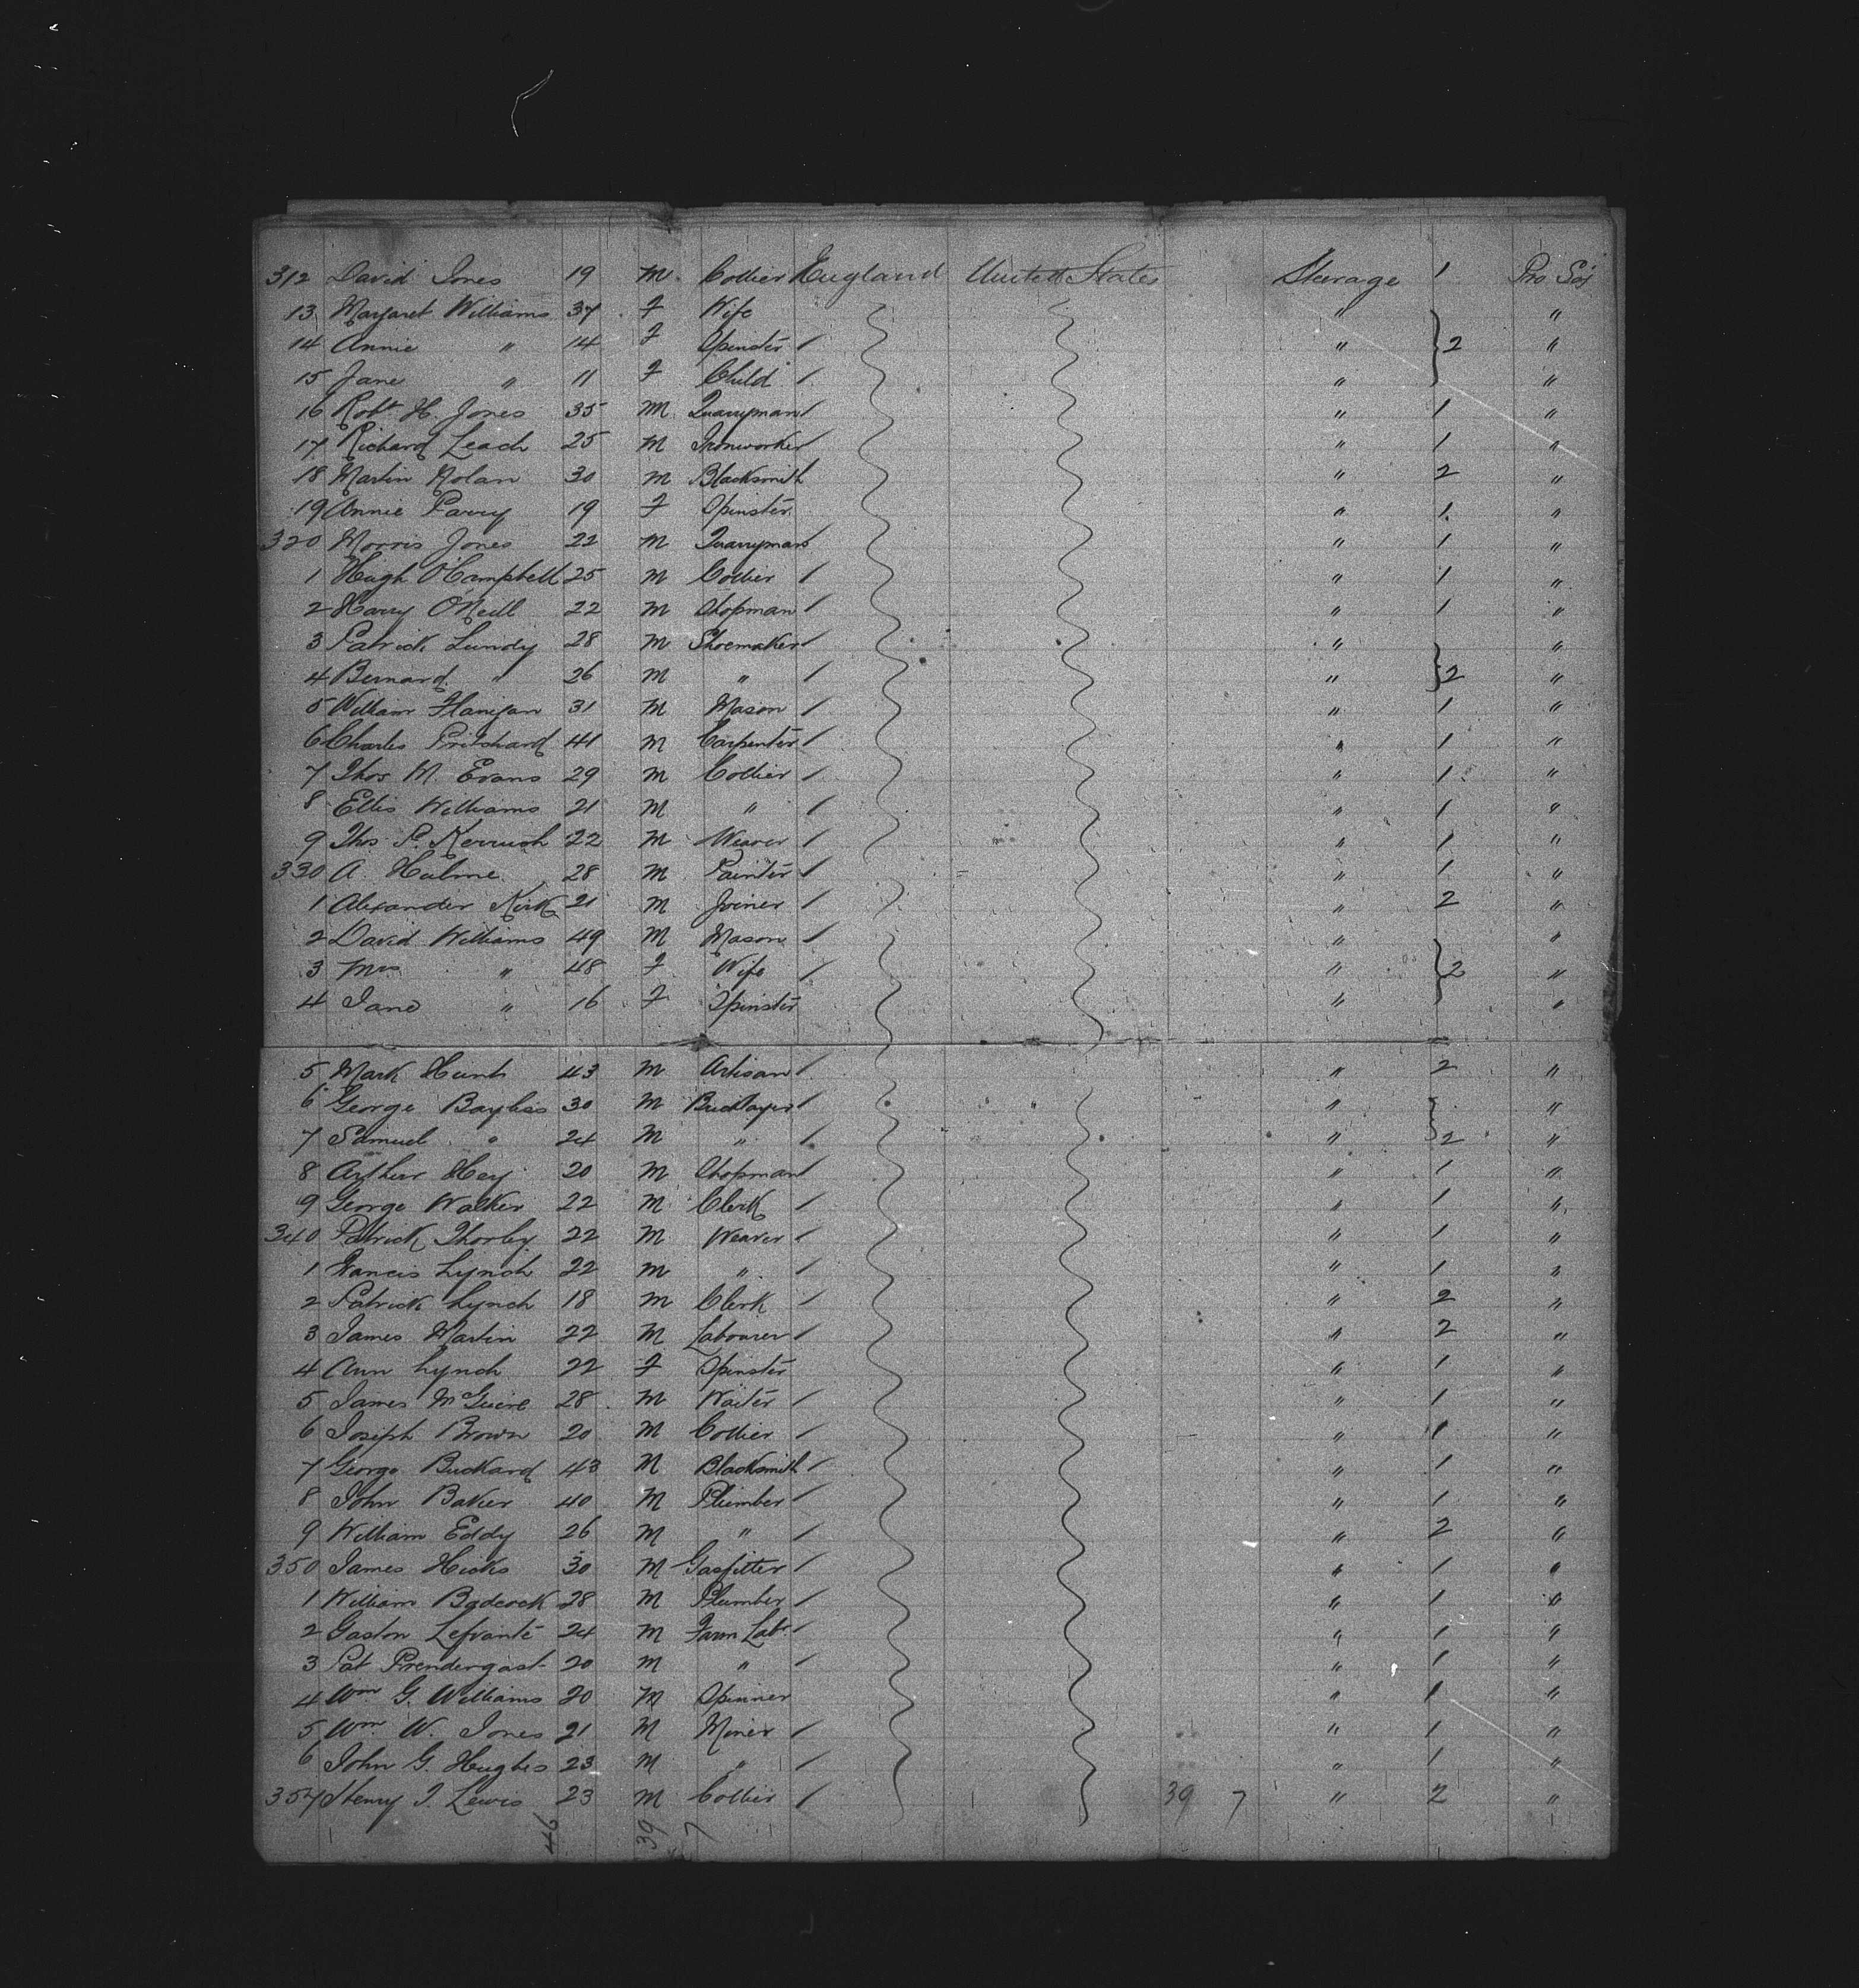 312 David Jones 19 M. Collier England United States Steerage 1 Pro Soj
13 Margaret Williams 37 F Wife " "
14 Annie " 14 F Spinster / " } 2 "
15 Jane " 11 F Child / " "
16 Robt H. Jones 35 M Quarryman / " 1 "
17 Richard Leach 25 M Ironworker / " 1 "
18 Martin Nolan 30 M Blacksmith " 2 "
19 Annie Parry 19 F Spinster " 1 "
320 Morris Jones 22 M Quarryman " 1 "
1 Hugh O'Campbell 25 M Collier / " 1 "
2 Harry O'Neill 22 M Shopman / " 1 "
3 Patrick Lundy 28 M Shoemaker / " "
4 Bernard " 26 M " / " } 2 "
5 William Flanigan 31 M Mason / " 1 "
6 Charles Pritchard 41 M Carpenter / " 1 "
7 Thos M. Evans 29 M Collier / " 1 "
8 Ellis Williams 21 M " / " 1 "
9 Thos P. Kerruish 22 M Weaver / " 1 "
330 A. Hulme 28 M Painter / " 1 "
1 Alexander Kirk 21 M Joiner / " 2 "
2 David Williams 49 M Mason / " "
3 Mrs " 48 F Wife / " } 2 "
4 Jane " 16 F Spinster " "
5 Mark Hunt 43 M Artisan / " 2 "
6 George Bayliss 30 M Bricklayer / " "
7 Samuel " 24 M " / " } 2 "
8 Arthur Hey 20 M Shopman / " 1 "
9 George Walker 22 M Clerk / " 1 "
340 Patrick Thorley 22 M Weaver / " 1 "
1 Francis Lynch 22 M " / " 1 "
2 Patrick Lynch 18 M Clerk / " 2 "
3 James Martin 22 M Labourer / " 2 "
4 Ann Lynch 22 F Spinster " 1 "
5 James McGuire 28 M Waiter / " 1 "
6 Joseph Brown 20 M Collier / " 1 "
7 George Buckard 43 M Blacksmith / " 1 "
8 John Baker 40 M Plumber / " 1 "
9 William Eddy 26 M " / " 2 "
350 James Hicks 30 M Gasfitter / " 1 "
1 William Badcock 28 M Plumber / " 1 "
2 Gaston Lefranté 24 M Farm Labr / " 1 "
3 Pat Prendergast 20 M " / " 1 "
4 Wm G. Williams 20 M Spinner " 1 "
5 Wm W. Jones 21 M Miner / " 1 "
6 John G. Hughes 23 M " / " 1 "
357 Henry J. Lewis 23 M Collier / 39 7 " 2 "
46 39 7